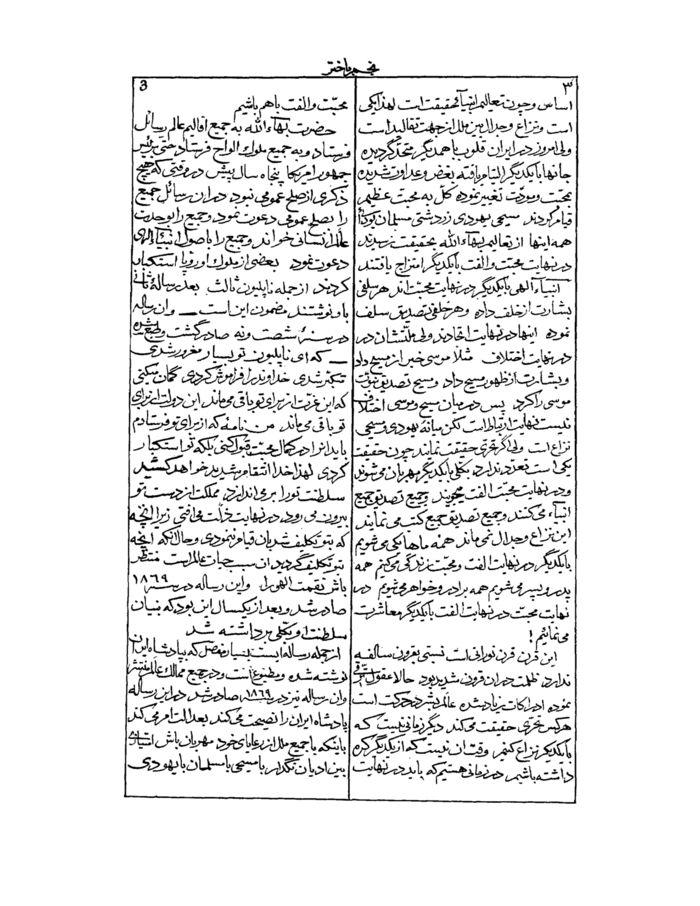 نجم باختر
۳
3
اساس و چون تعالیم انبیاء حقیقت است لهذا یکی
است و نزاع و جدال بین ملل از جهت تقالید است
ولی امروز در ایران قلوب با همدیگر متحد گردیده
جانها با یکدیگر التیام یافته بغض و عداوت شدیده
بمحبت و مودت تغییر نموده کل به محبت عظیم
قیام کردند مسیحی یهودی زردشتی مسلمان بودائی
همه اینها از تعالیم بهاءالله بحقیقت رسیدند
در نهایت محبت و الفت با یکدیگر امتزاج یافتند
انبیاء الهی با یکدیگر در نهایت محبت اند هر سلفی
بشارت از خلف داده و هر خلفی تصدیق سلف
نموده اینها در نهایت اتحادند ولی ملتشان در
در نهایت اختلاف مثلا موسی خبر از مسیح داد
و بشارت از ظهور مسیح داد و مسیح تصدیق نبوت
موسی را کرد پس در میان مسیح و موسی اختلافی
نیست نهایت ارتباط است لکن میانهٔ یهودی و مسیحی
نزاع است ولی اگر تحری حقیقت نمایند چون حقیقت
یکی است تعدد ندارد بکلی با یکدیگر مهربان می شوند
و در نهایت محبت الفت میجویند و جمیع تصدیق جمیع
انبیاء می کنند و جمیع تصدیق جمیع کتب می نمایند
این نزاع و جدال نمی ماند همه ماها یکی می شویم
با یکدیگر در نهایت الفت و محبت زندگی می کنیم همه
پدر و پسر می شویم همه برادر و خواهر می شویم در
نهایت محبت در نهایت الفت با یکدیگر معاشرت
می نمائیم !
این قرن قرن نورانی است نسبتی بقرون سالفه
ندارد ظلمت در آن قرون شدید بود حالا عقول ترقی
نموده ادراکات زیاد شده عالم بشر در حرکت است
هر کس تحری حقیقت می کند دیگر زمانی نیست که
با یکدیگر نزاع کنیم وقت آن نیست که از یکدیگر کره
داشته باشیم در زمانی هستیم که باید در نهایت
محبت و الفت با هم باشیم
حضرت بهاءالله به جمیع اقالیم عالم رسائل
فرستاد و به جمیع ملوک الواح فرستاد حتی برئیس
جمهور امریکا پنجاه سال پیش در وقتی که هیچ
ذکری از صلح عمومی نبود در آن رسائل جمیع
را بصلح عمومی دعوت نمود و جمیع را بوحدت
عالم انسانی خواند و جمیع را باصول انبیاء الهی
دعوت نمود بعضی از ملوک اوروپا استکبار
کردند از جمله ناپلیون ثالث بعد رسالهٔ ثانی
باو نوشتند مضمون این است — و آن رساله
در سنهٔ شصت و نه صادر گشت و طبع شده
— که ای ناپلیون تو بسیار مغرور شدی
تکبر شدی خداوند را فراموش کردی گمان میکنی
که این عزت از برای تو باقی می ماند این دولت از برای
تو باقی می ماند من نامه که از برای تو فرستادم
باید آنرا در کمال محبت قبول کنی بلکه تو استکبار
کردی لهذا خدا انتقام شدید خواهد کشید
سلطنت تو را بر می اندازد مملکت از دست تو
بیرون می رود در نهایت ذلت می افتی زیرا آنچه
که بتو تکلیف شد بان قیام ننمودی و حال آنکه آنچه
بتو تکلیف گردید آن سبب حیات عالم است منتظر
باش نقمت الهی را و این رساله در سنه ۱۸۶۹
صادر شد و بعد از یکسال این بود که بنیان
سلطنت او بکلی برداشته شد
از جمله رساله ایست بسیار مفصل که بپادشاه ایران
نوشته شده و مطبوع است و در جمیع ممالک عالم منتشر
و آن رساله نیز در ۱۸۶۹ صادر شد در این رساله
پادشاه ایران را نصیحت می کند بعدالت امر می کند
باینکه با جمیع ملل از رعایای خود مهربان باش امتیازی
بین ادیان نگذار با مسیحی با مسلمان با یهودی